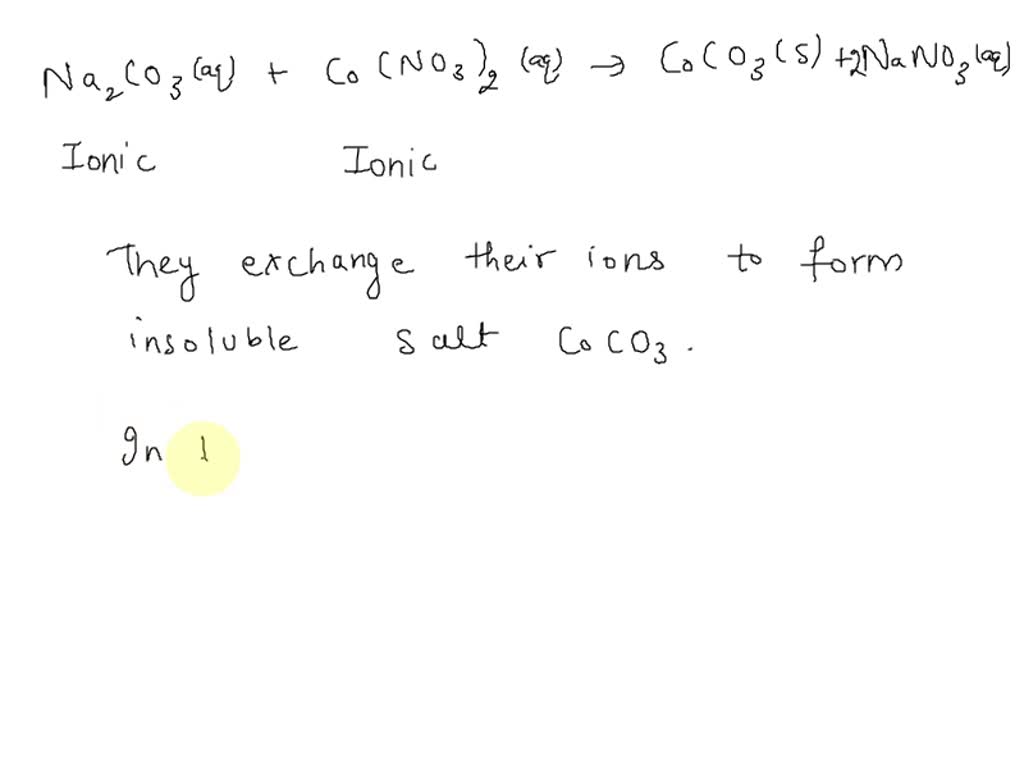 Na₂CO₃(aq) + Co(NO₃)₂(aq) → CoCO₃(s) + 2NaNO₃(aq)
Ionic Ionic
They exchange their ions to form
insoluble salt CoCO₃.
In